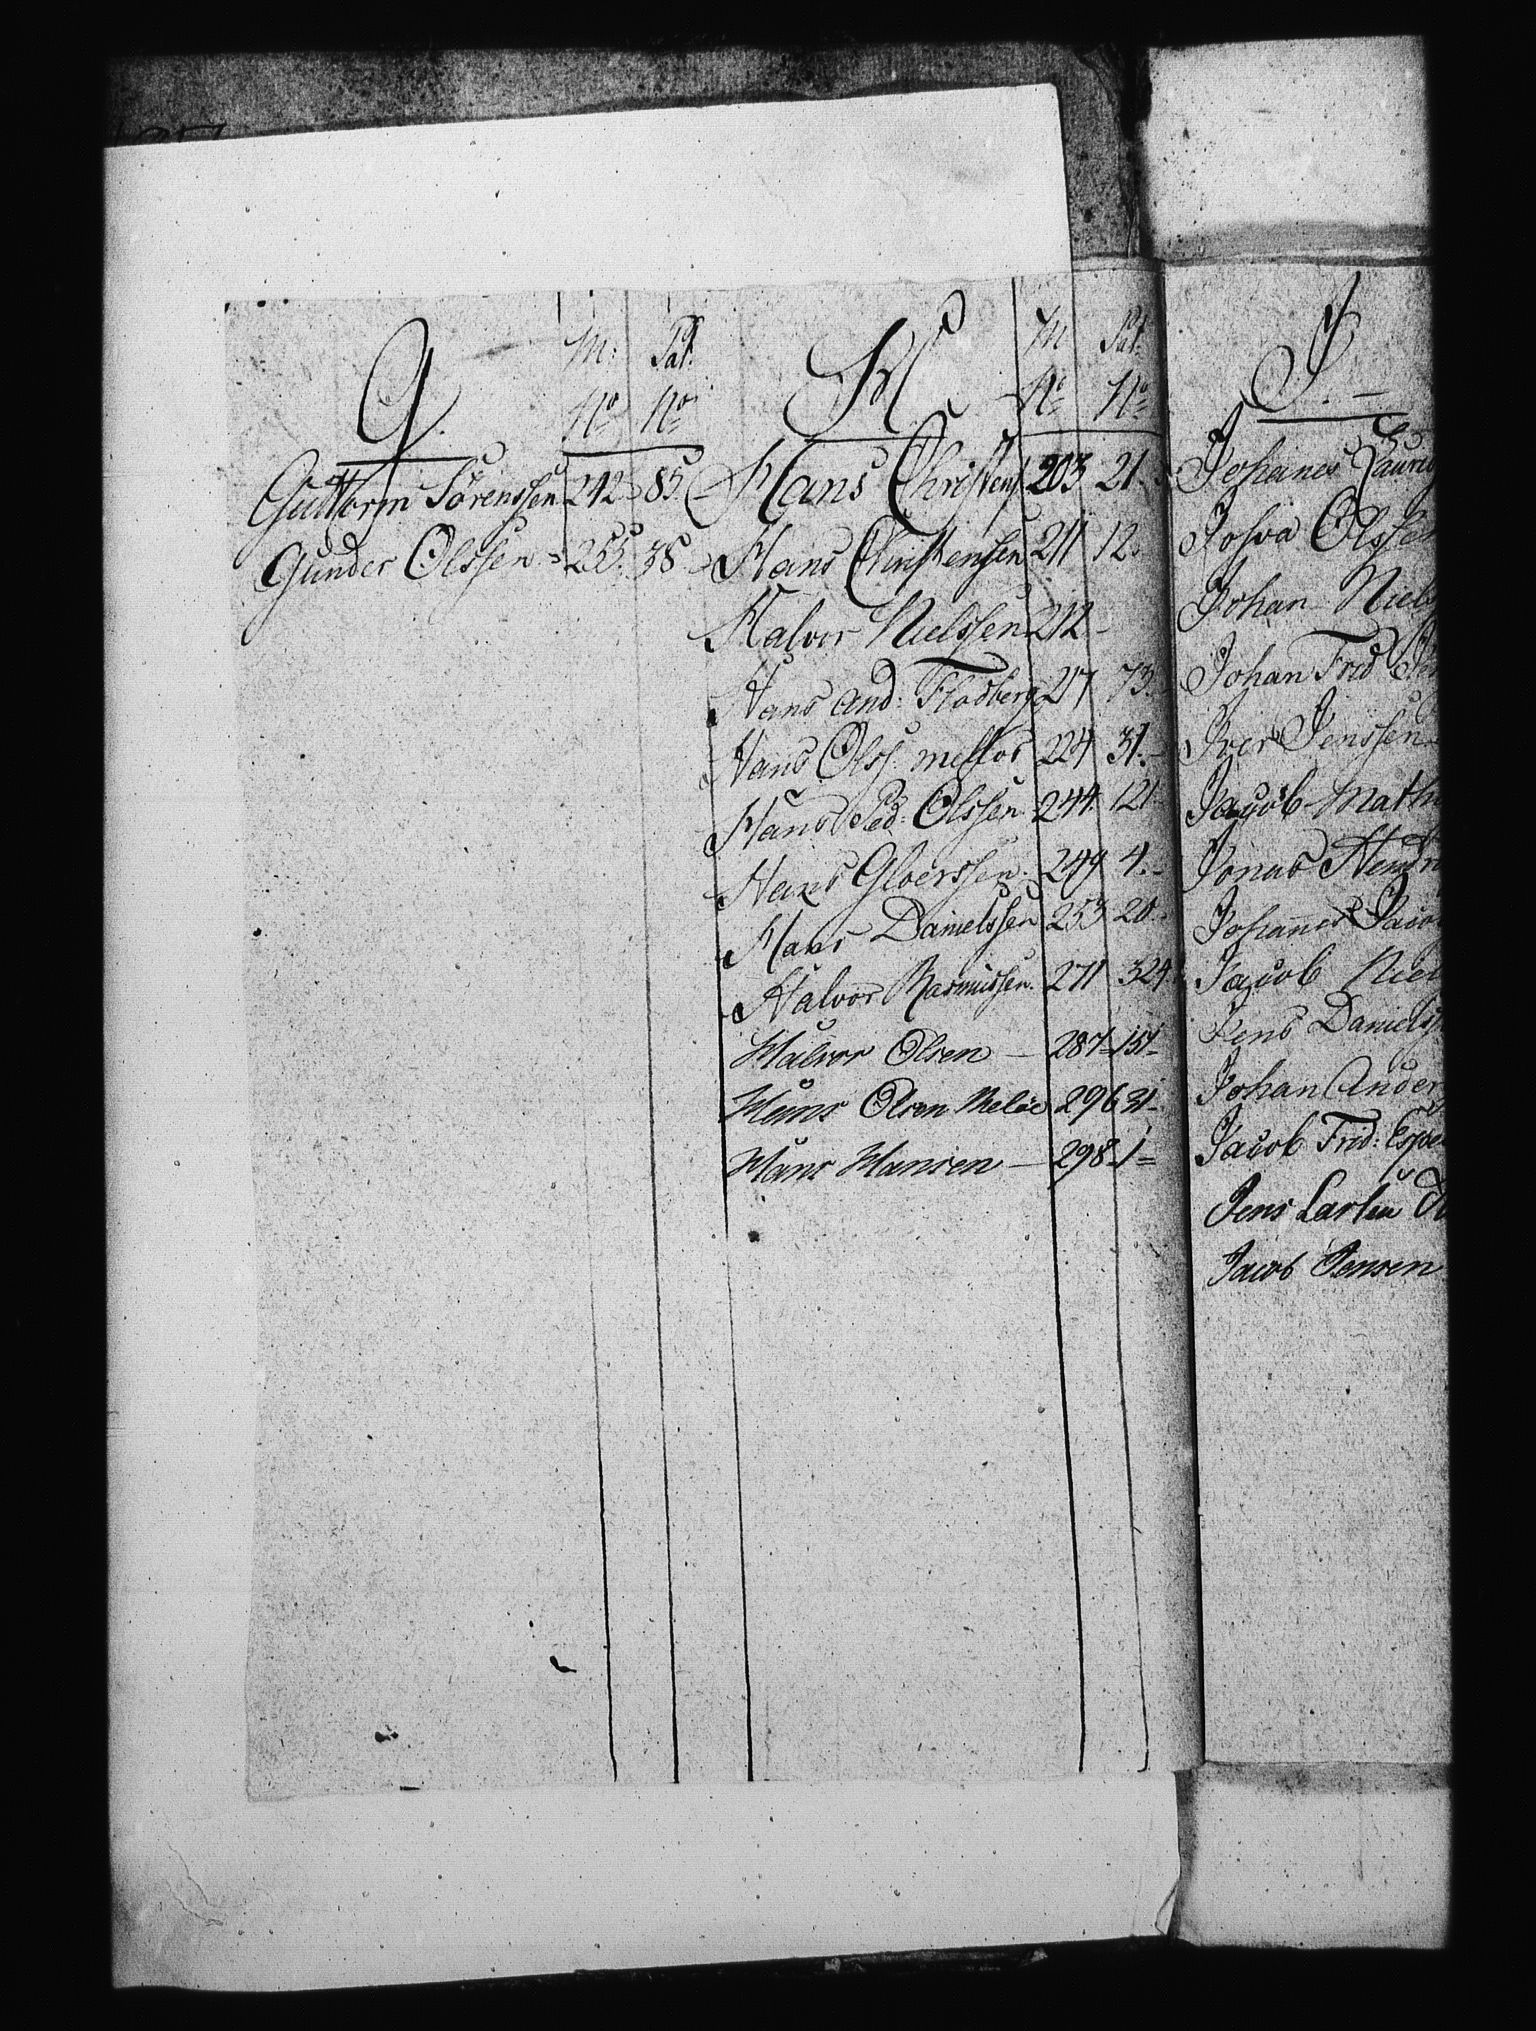 G.
M: Pat:
No No
Guttorm Sörenssen 242. 85.
Gunder Olssen 255. 38
H
M Pat:
No No
Hans Christens 203 21.
Hans Christensen 211 12.
Halvor Nielssen 212
Hans And: Flodberg 217 73.
Hans Olss: 224 31.
Hans Ped: Olssen 244. 121
Hans Gloerssen. 249 4.
Hans Danielssen 253 20.
Halvor Rasmussen. 271 324.
Halvor Olsen 287 151
Hans Olsen Meløe 296 31
Hans Hansen 298 1
J.
Johanes Laurit
Josva Olssen
Johan Niels
Johan Frid
Iver Jenssen
Jacob Math
Jonas Hendr
Johannes Jaco
Jacob Niel
Jens Danielss
Johan Ander
Jacob Frid: Espe
Jens Larsen
Jacob Jensen